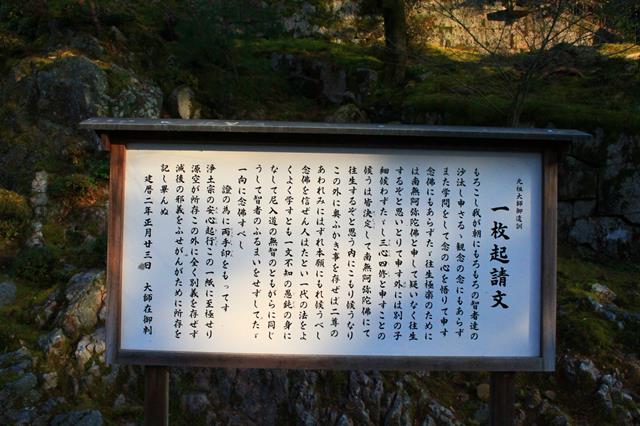 元祖大師御遺訓
一枚起請文
もろこし我が朝にもろもろの智者達の
沙汰し申さるゝ観念の念にもあらず
また学問をして念の心を悟りて申す
念佛にもあらずたゞ往生極楽のために
は南無阿弥陀佛と申して疑いなく往生
するぞと思いとりて申す外には別の子
細候わずたゞし三心四修と申すことの
候うは皆決定して南無阿弥陀佛にて
往生するぞと思う内にこもり候うなり
この外に奥ふかき事を存ぜば二尊の
あわれみにはずれ本願にもれ候うべし
念佛を信ぜん人はたとい一代の法をよ
くよく学すとも一文不知の愚鈍の身に
なして尼入道の無智のともがらに同じ
うして智者のふるまいをせずしてたゞ
一向に念佛すべし
證の為に両手印をもってす
浄土宗の安心起行この一紙に至極せり
源空が所存この外に全く別義を存ぜず
滅後の邪義をふせがんがために所存を
記し畢んぬ
建暦二年正月廿三日　大師在御判